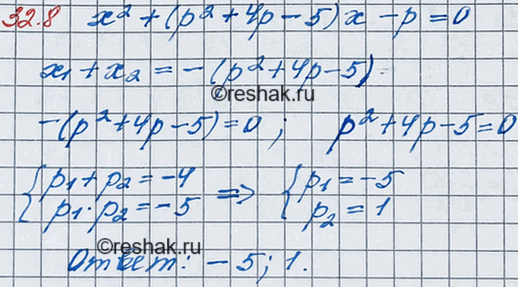 32.8 x² + (p² + 4p − 5)x − p = 0
x₁ + x₂ = −(p² + 4p − 5)
©reshak.ru
−(p² + 4p − 5) = 0 ; p² + 4p − 5 = 0
{ p₁ + p₂ = −4 ⇒ { p₁ = −5
p₁ · p₂ = −5 p₂ = 1
©reshak.ru
Ответ: −5; 1.